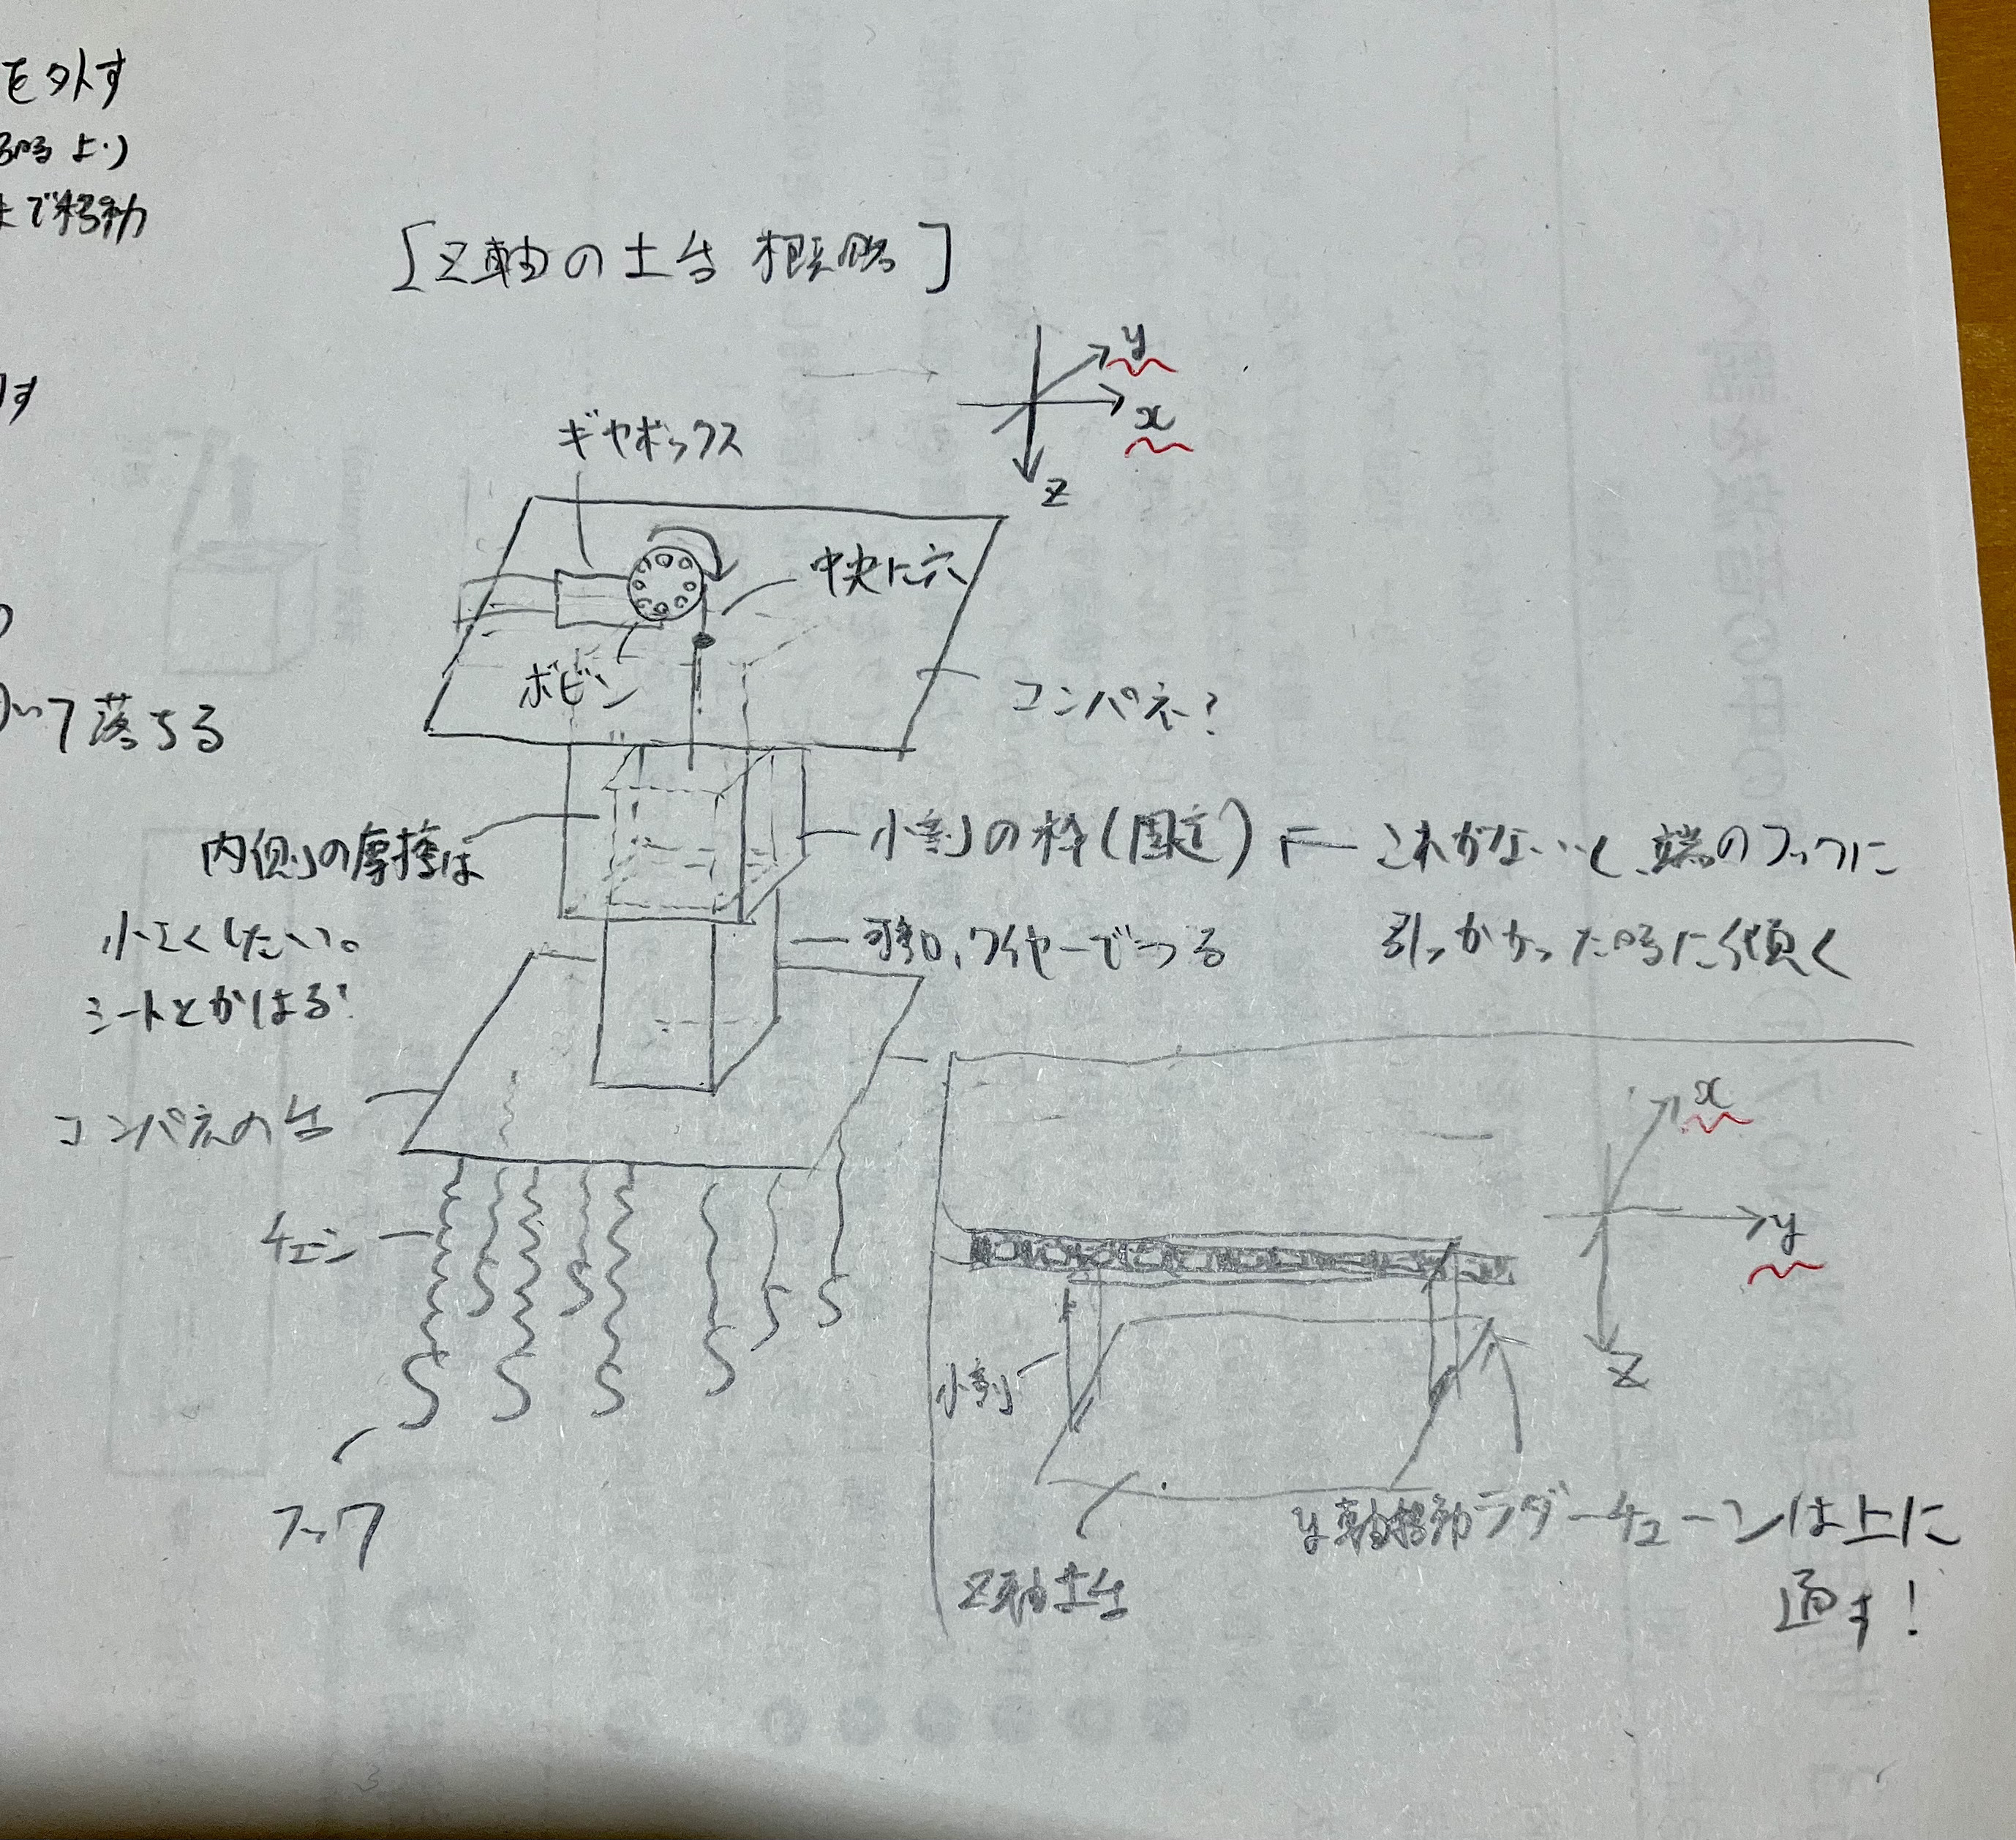 を外す
まで移動
す
って落ちる
[Z軸の土台 概略]
y
x
z
ギヤボックス
中央に穴
ボビン
コンパネ?
内側の摩擦は
小さくしたい。
シートとかはる?
小割の枠(固定) ← これがないと、端のフックに
引っかかった時に傾く
可動、ワイヤーでつる
コンパネの台
チェーン
フック
x
y
z
小割
Z軸土台
y軸移動ラダーチェーンは上に
通す!